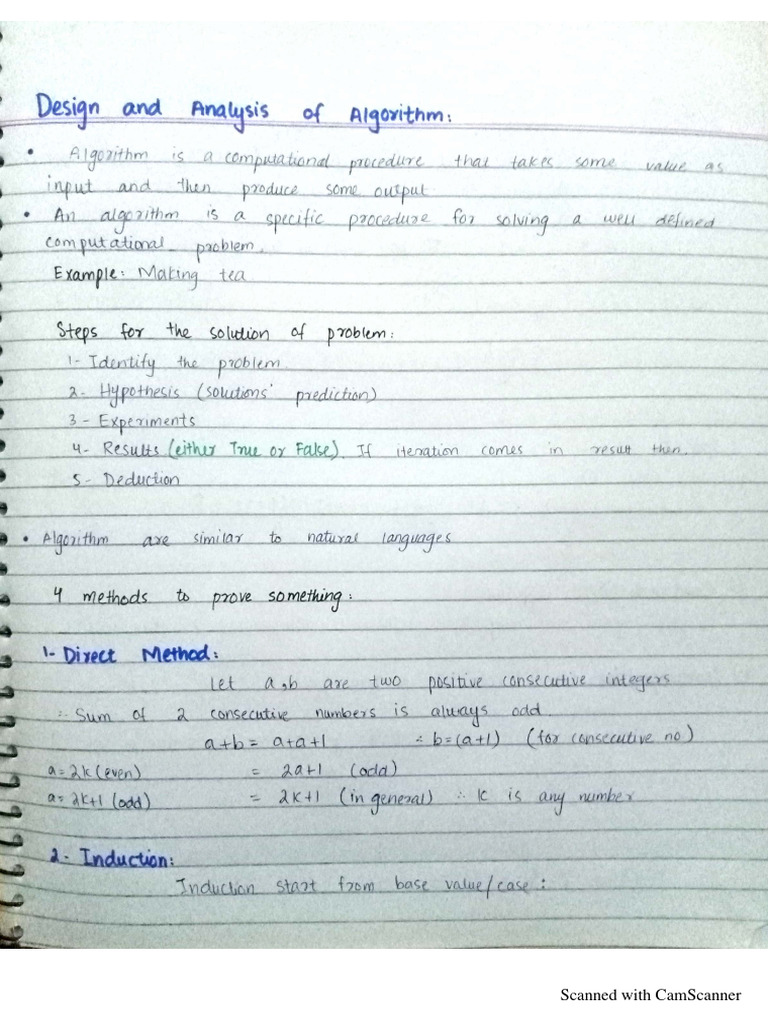 Design and Analysis of Algorithm:
• Algorithm is a computational procedure that takes some value as
input and then produce some output
• An algorithm is a specific procedure for solving a well defined
computational problem.
Example: Making tea
Steps for the solution of problem:
1- Identify the problem
2- Hypothesis (solutions' prediction)
3- Experiments
4- Results (either True or False). If iteration comes in result then.
5- Deduction
• Algorithm are similar to natural languages
4 methods to prove something:
1- Direct Method:
Let a,b are two positive consecutive integers
∴ Sum of 2 consecutive numbers is always odd
a+b = a+a+1 ∴ b=(a+1) (for consecutive no)
a=2k (even) = 2a+1 (odd)
a=2k+1 (odd) = 2k+1 (in general) ∴ k is any number
2- Induction:
Induction start from base value/case:
Scanned with CamScanner